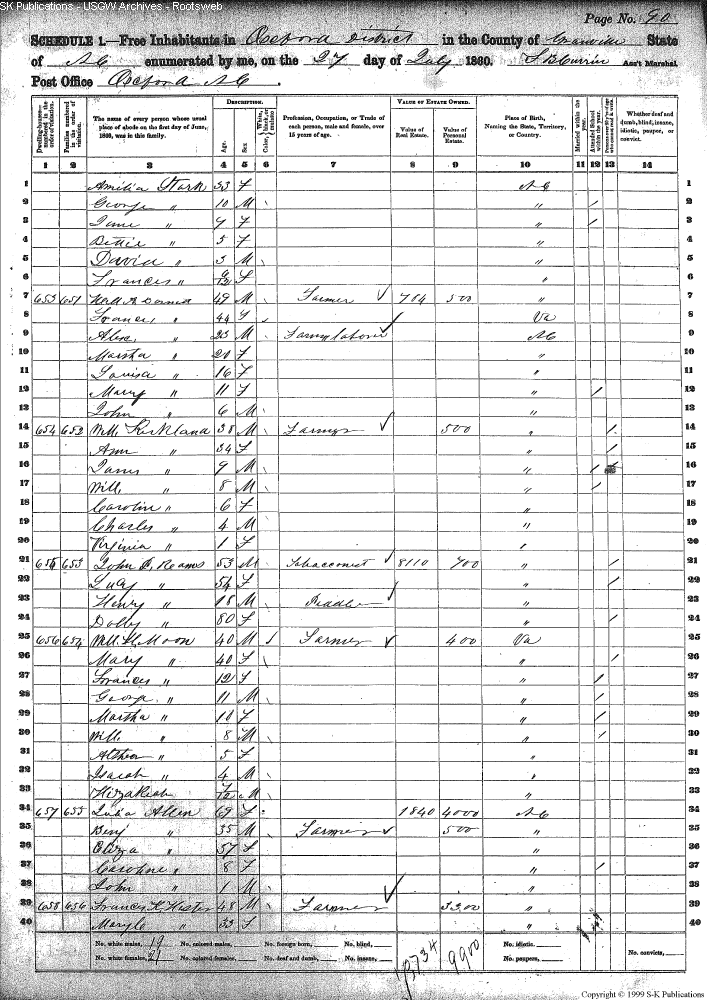 SK Publications - USGW Archives - Rootsweb
Page No. 90
SCHEDULE 1.—Free Inhabitants in Oxford District in the County of Granville State
of NC enumerated by me, on the 27 day of July 1860. Ass't Marshal
Post Office Oxford NC.
Dwelling-houses—numbered in the order of visitation. Families numbered in the order of visitation. The name of every person whose usual place of abode on the first day of June, 1860, was in this family. DESCRIPTION. Age. Sex. Color, White, black, or mulatto. Profession, Occupation, or Trade of each person, male and female, over 15 years of age. VALUE OF ESTATE OWNED. Value of Real Estate. Value of Personal Estate. Place of Birth, Naming the State, Territory, or Country. Married within the year. Attended School within the year. Whether deaf and dumb, blind, insane, idiotic, pauper, or convict.
1 2 3 4 5 6 7 8 9 10 11 12 13 14
1 Amilia Stark 33 F NC 1
2 George " 10 M \ " / 2
3 Jane " 7 F " / 3
4 Bettie " 5 F " 4
5 David " 3 M \ " 5
6 Frances " F " 6
7 653 651 49 M Farmer ✓ 784 500 " 7
8 Frances " 44 F Va 8
9 Alex " 23 M Farm laborer ✓ NC 9
10 Martha " 20 F " 10
11 Louisa " 16 F " 11
12 Mary " 11 F " / 12
13 John " 6 M \ " 13
14 654 652 Will. Kirkland 38 M \ Farmer ✓ 500 " / 14
15 Ann " 34 F " / 15
16 James " 9 M \ " / 16
17 Will. " 8 M \ " / 17
18 Carolin " 6 F " 18
19 Charles " 4 M \ " 19
20 Virginia " 1 F " 20
21 655 653 John Reams 53 M Tobacconist ✓ 8110 700 " / 21
22 Lucy " 54 F " / 22
23 Henry " 18 M \ Peddler ✓ " 23
24 Dolly " 80 F " / 24
25 656 654 Will. H. Moon 40 M Farmer ✓ 400 Va 25
26 Mary " 40 F " / 26
27 Frances " 12 F " / 27
28 George " 11 M \ " / 28
29 Martha " 10 F " / 29
30 Will. " 8 M \ " / 30
31 " 5 F " 31
32 Isaiah " 4 M \ " 32
33 Hezakiah M " 33
34 657 655 Julia Allen 69 F 1840 4000 NC 34
35 Benj " 35 M \ Farmer ✓ 500 " 35
36 Eliza " 57 F " 36
37 Caroline " 8 F " / 37
38 John " 1 M \ " 38
39 658 656 Frances K. Hester 48 M \ Farmer ✓ 3300 " 39
40 Mary " 33 F " 40
No. white males, 19 No. colored males, No. foreign born, No. blind, No. idiotic, No. convicts,
No. white females, 21 No. colored females, No. deaf and dumb, No. insane, 10734 9900 No. paupers,
Copyright © 1999 S-K Publications